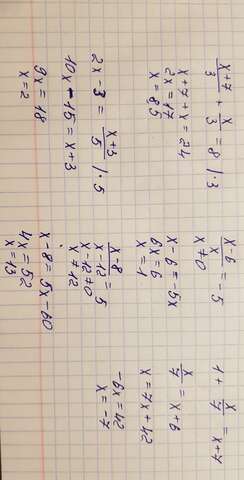 x+7/3 + x/3 = 8 |·3
x+7+x=24
2x=17
x=85
2x-3 = x+3/5 |·5
10x-15=x+3
9x=18
x=2
x-6/x = -5
x≠0
x-6=-5x
6x=6
x=1
x-8/x-12 = 5
x-12≠0
x≠12
x-8=5x-60
4x=52
x=13
1+ x/7 = x+7
x/7 = x+6
x=7x+42
-6x=42
x=-7